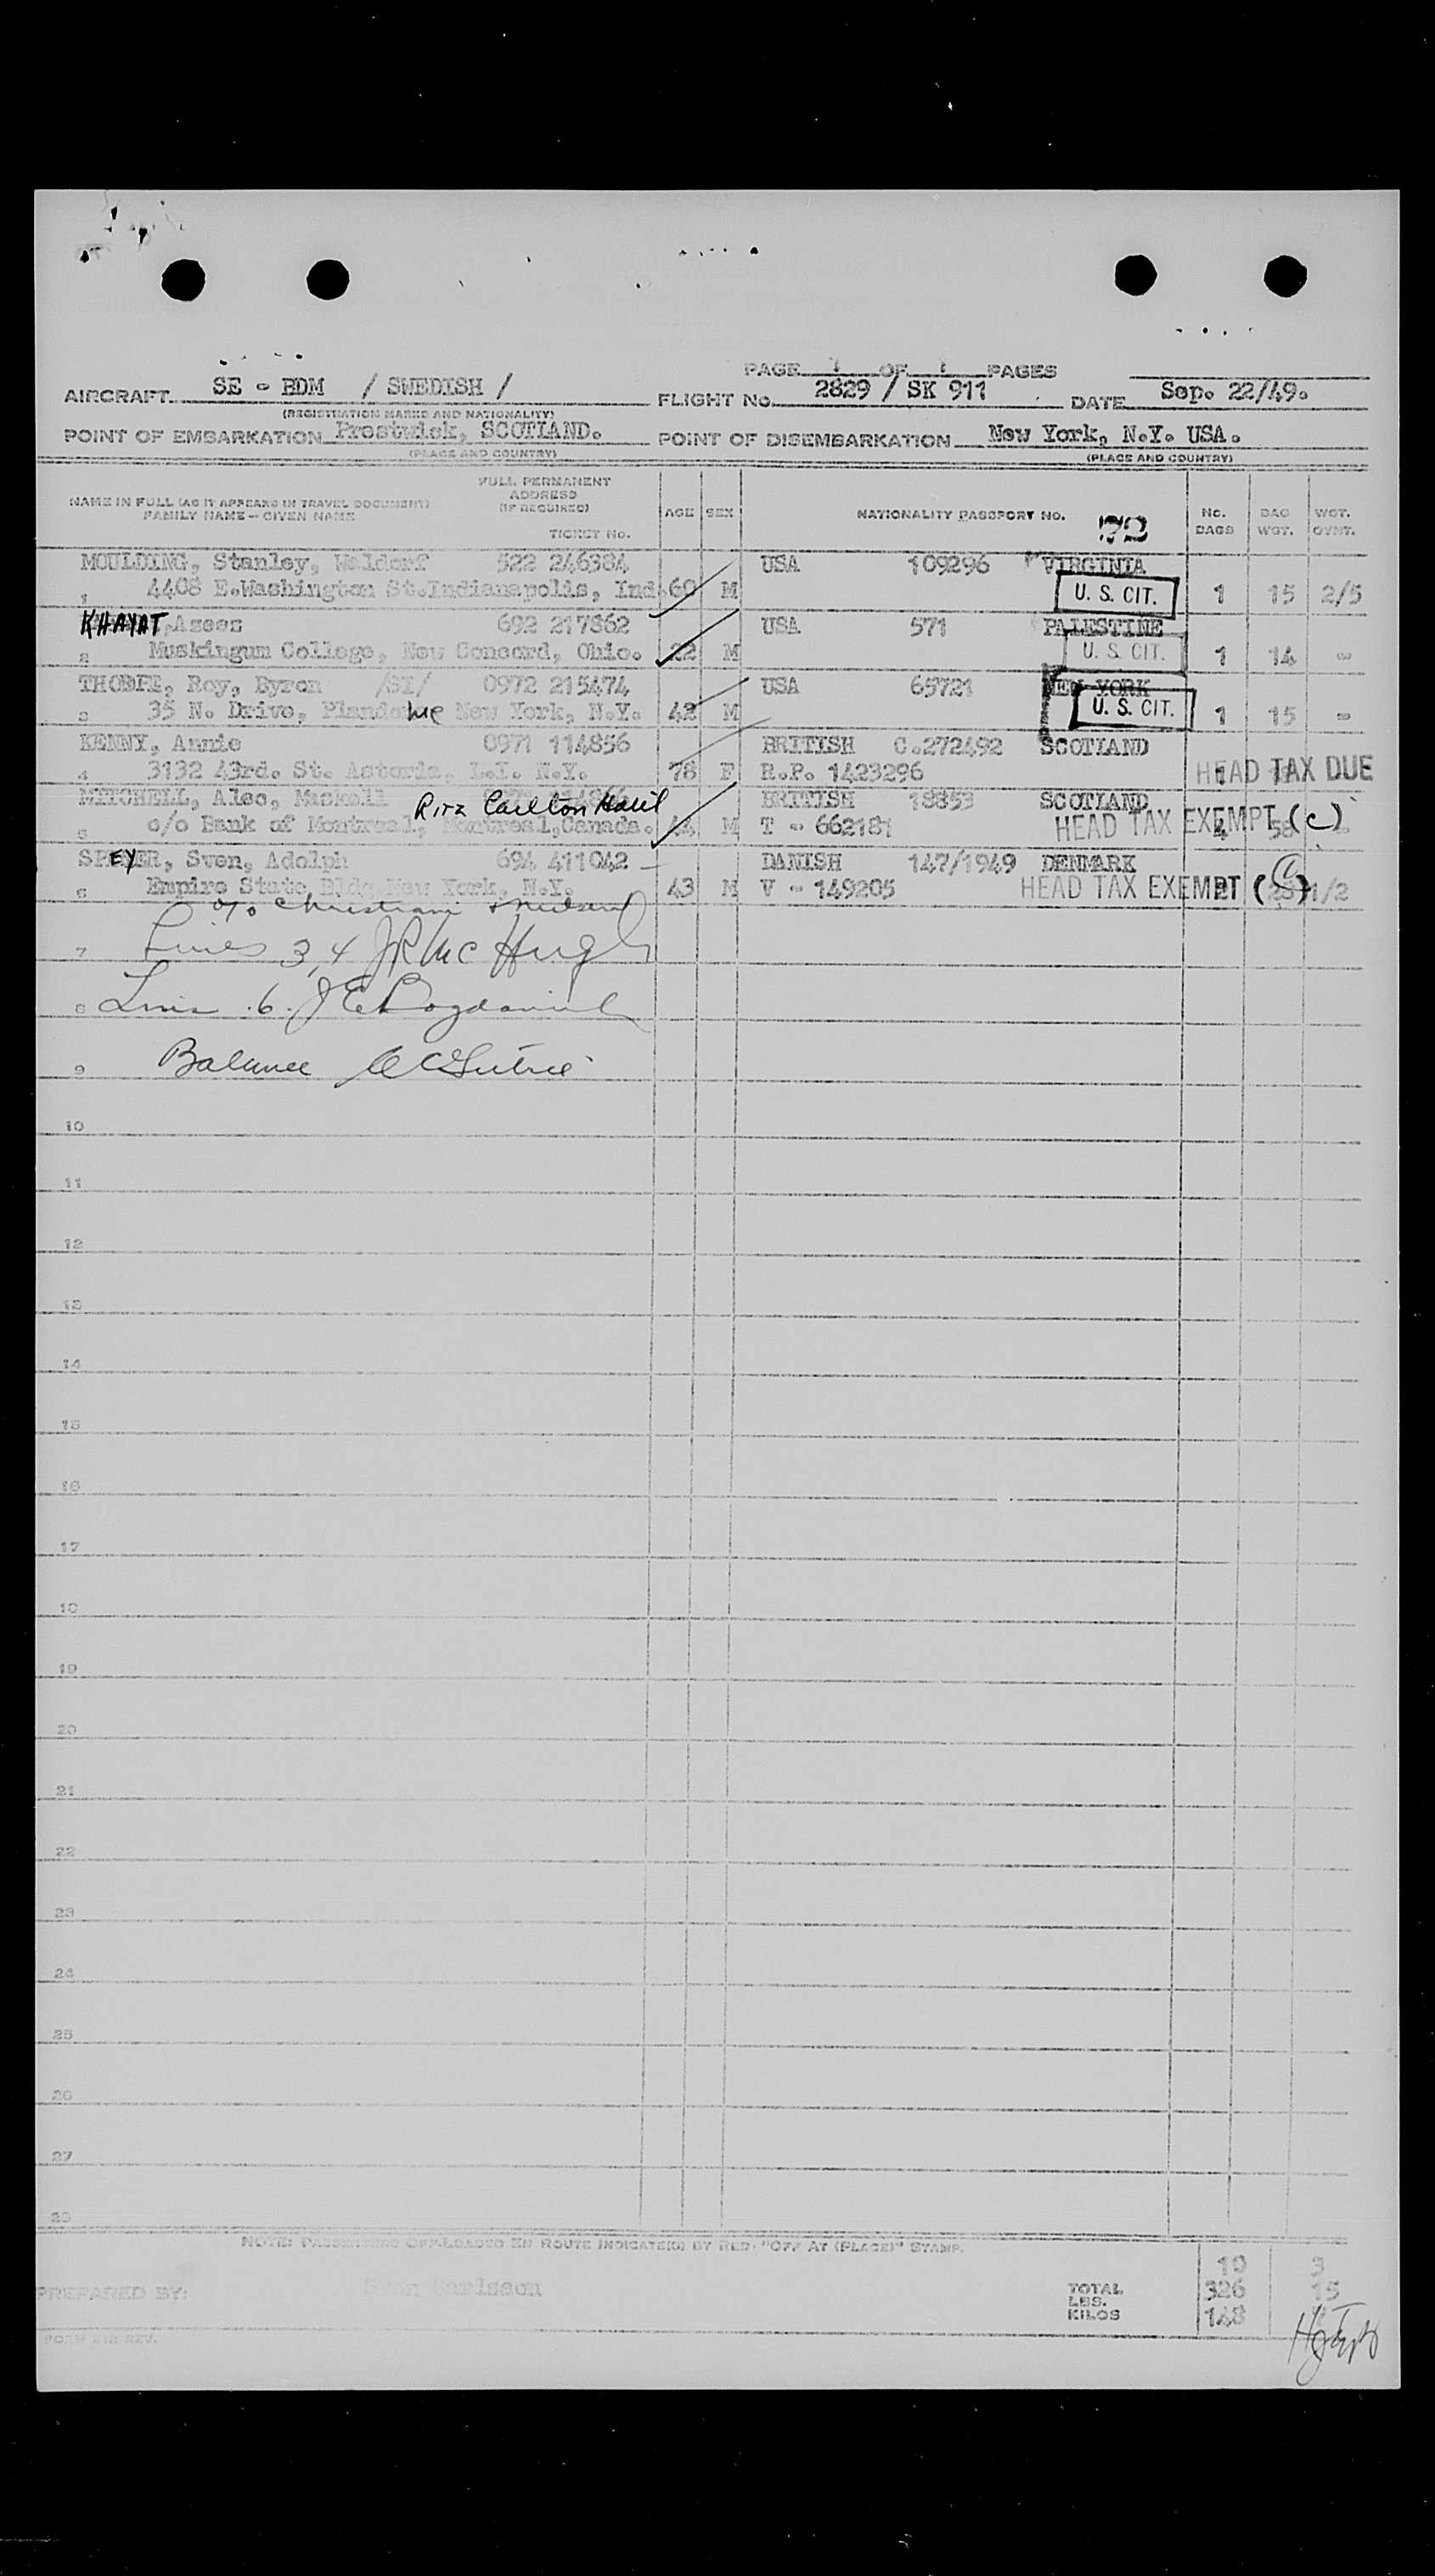 PAGE 1 OF 1 PAGES
AIRCRAFT SE - BDM / SWEDISH / FLIGHT No. 2829 / SK 911 DATE Sep. 22/49.
(REGISTRATION MARKS AND NATIONALITY)
POINT OF EMBARKATION Prestwick, SCOTLAND. POINT OF DISEMBARKATION New York, N.Y. USA.
(PLACE AND COUNTRY) (PLACE AND COUNTRY)
NAME IN FULL (AS IT APPEARS IN TRAVEL DOCUMENT)
FAMILY NAME - GIVEN NAME
FULL PERMANENT
ADDRESS
(IF REQUIRED)
TICKET No.
AGE SEX NATIONALITY PASSPORT NO. No. BAGS BAG WGT. WGT. OVWT.
MOULDING, Stanley, Waldorf 522 246384 USA 109296 VIRGINIA
1 4408 E.Washington St.Indianapolis, Ind. 60 M U. S. CIT. 1 15 2/5
KHAYAT, Azeez 692 217862 USA 571 PALESTINE
2 Muskingum College, New Concord, Ohio. 22 M U. S. CIT. 1 14 -
THORPE, Roy, Byron /SI/ 0972 215474 USA 65721 NEW YORK
3 35 N. Drive, Plandome New York, N.Y. 42 M U. S. CIT. 1 15 -
KENNY, Annie 0971 114856 BRITISH C.272492 SCOTLAND
4 3132 43rd. St. Astoria, L.I. N.Y. 78 F R.P. 1423296 HEAD TAX DUE
MITCHELL, Alec, Maskell Ritz Carlton Hotel BRITISH 18853 SCOTLAND
5 c/o Bank of Montreal, Montreal,Canada. 44 M T - 662181 HEAD TAX EXEMPT (c)
SPEYER, Sven, Adolph 694 411042 DANISH 147/1949 DENMARK
6 Empire State, Bldg.New York, N.Y. 43 M V - 149205 HEAD TAX EXEMPT (c) 1/2
c/o Christiani & Nielsen
7 Lines 3,4 JR McHugh
8 Line 6. J E
9 Balance
10
11
12
13
14
15
16
17
18
19
20
21
22
23
24
25
26
27
28
NOTE: PASSENGERS OFF-LOADED EN ROUTE INDICATE(D) BY RED: "OFF AT (PLACE)" STAMP.
10 3
PREPARED BY: Sven Carlsson TOTAL LBS. 326 15
KILOS 148
FORM 212 REV.